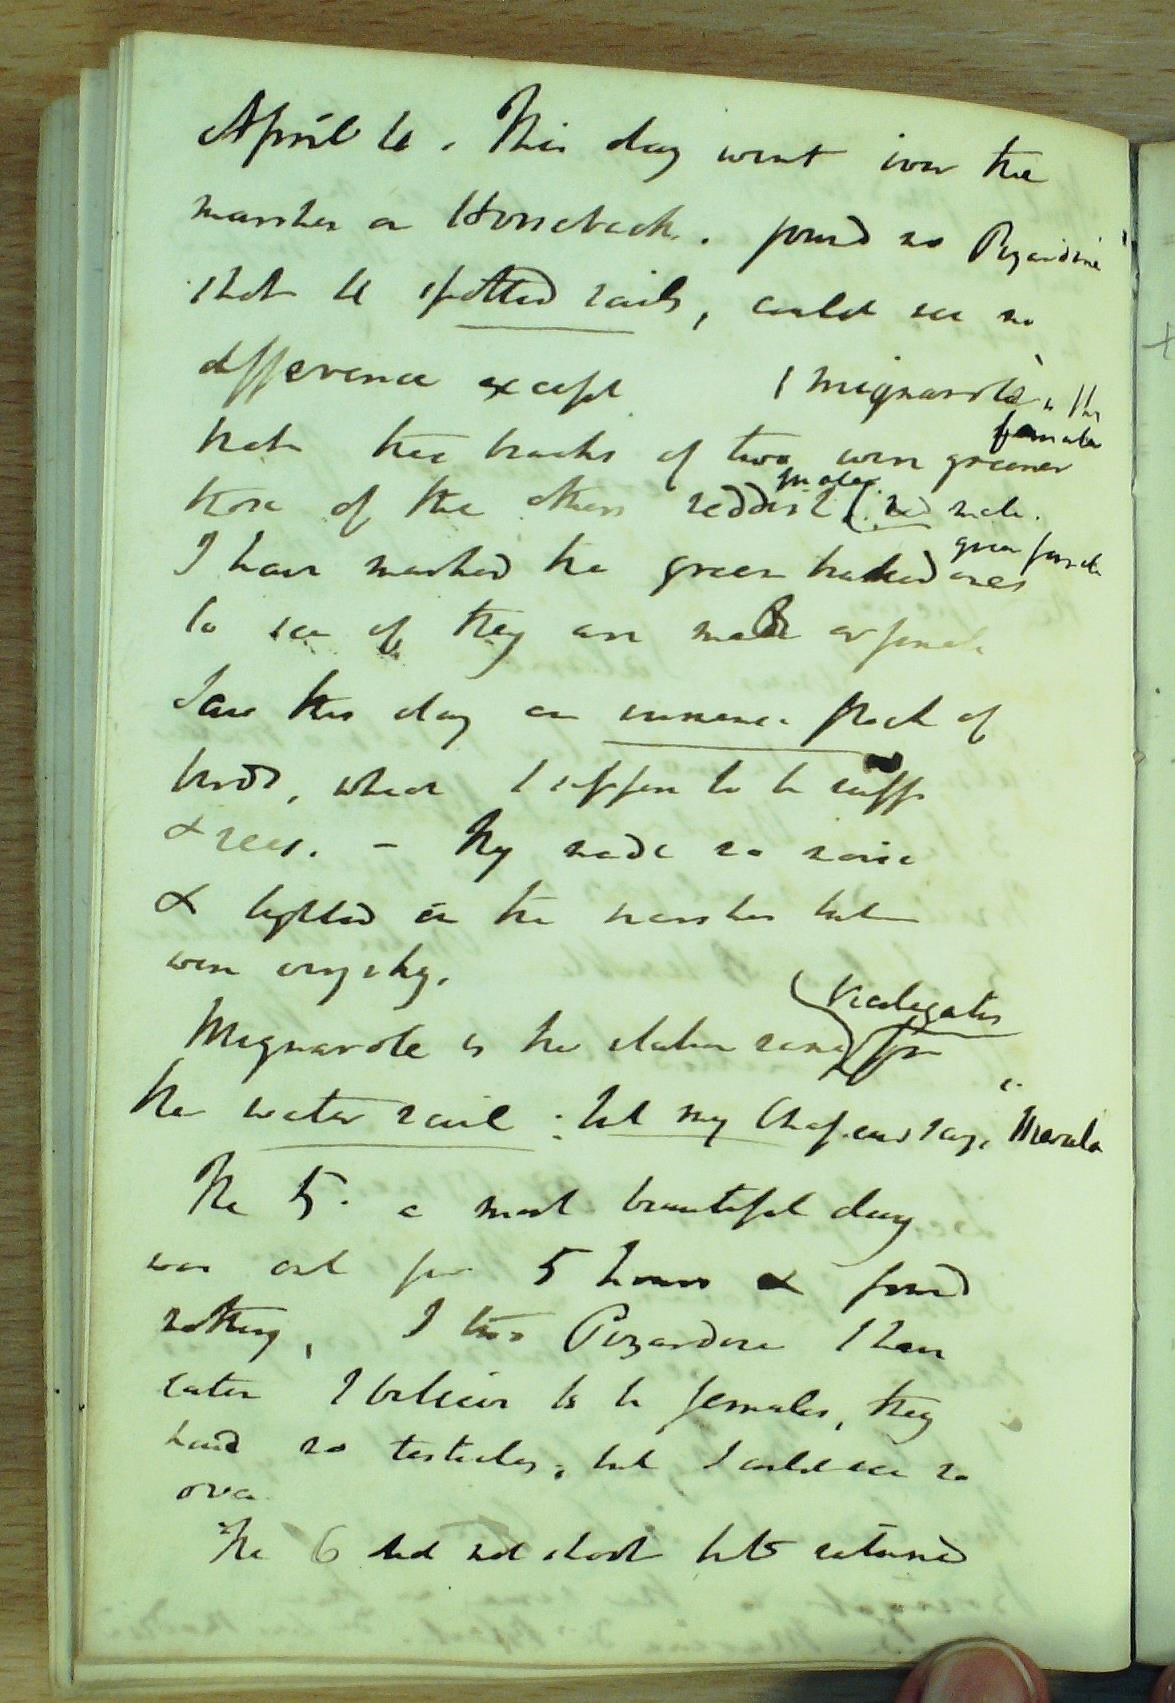 April 4. This day went over the
marshes on Horseback. found no Pizardine
shot 4 spotted rails, could see no
difference except 1 mignarole in the
female
that the backs of two were greener
males
those of the others reddish (red male.
green female
I have marked the green backed ones
to see if they are male or female
Saw this day an immense flock of
birds, which I suppose to be ruffs
& rees. - They made no noise
& lighted in the marshes but
were very shy.
Viadegatis
Mignarole is the italian name for
the water rail: but my Chasseur says Merula
The 5. a most beautiful day
was out for 5 hours & found
nothing, I two Pizardine I have
eaten I believe to be females, they
had no testicles, but I could see no
ova.
The 6 did not shoot but returned